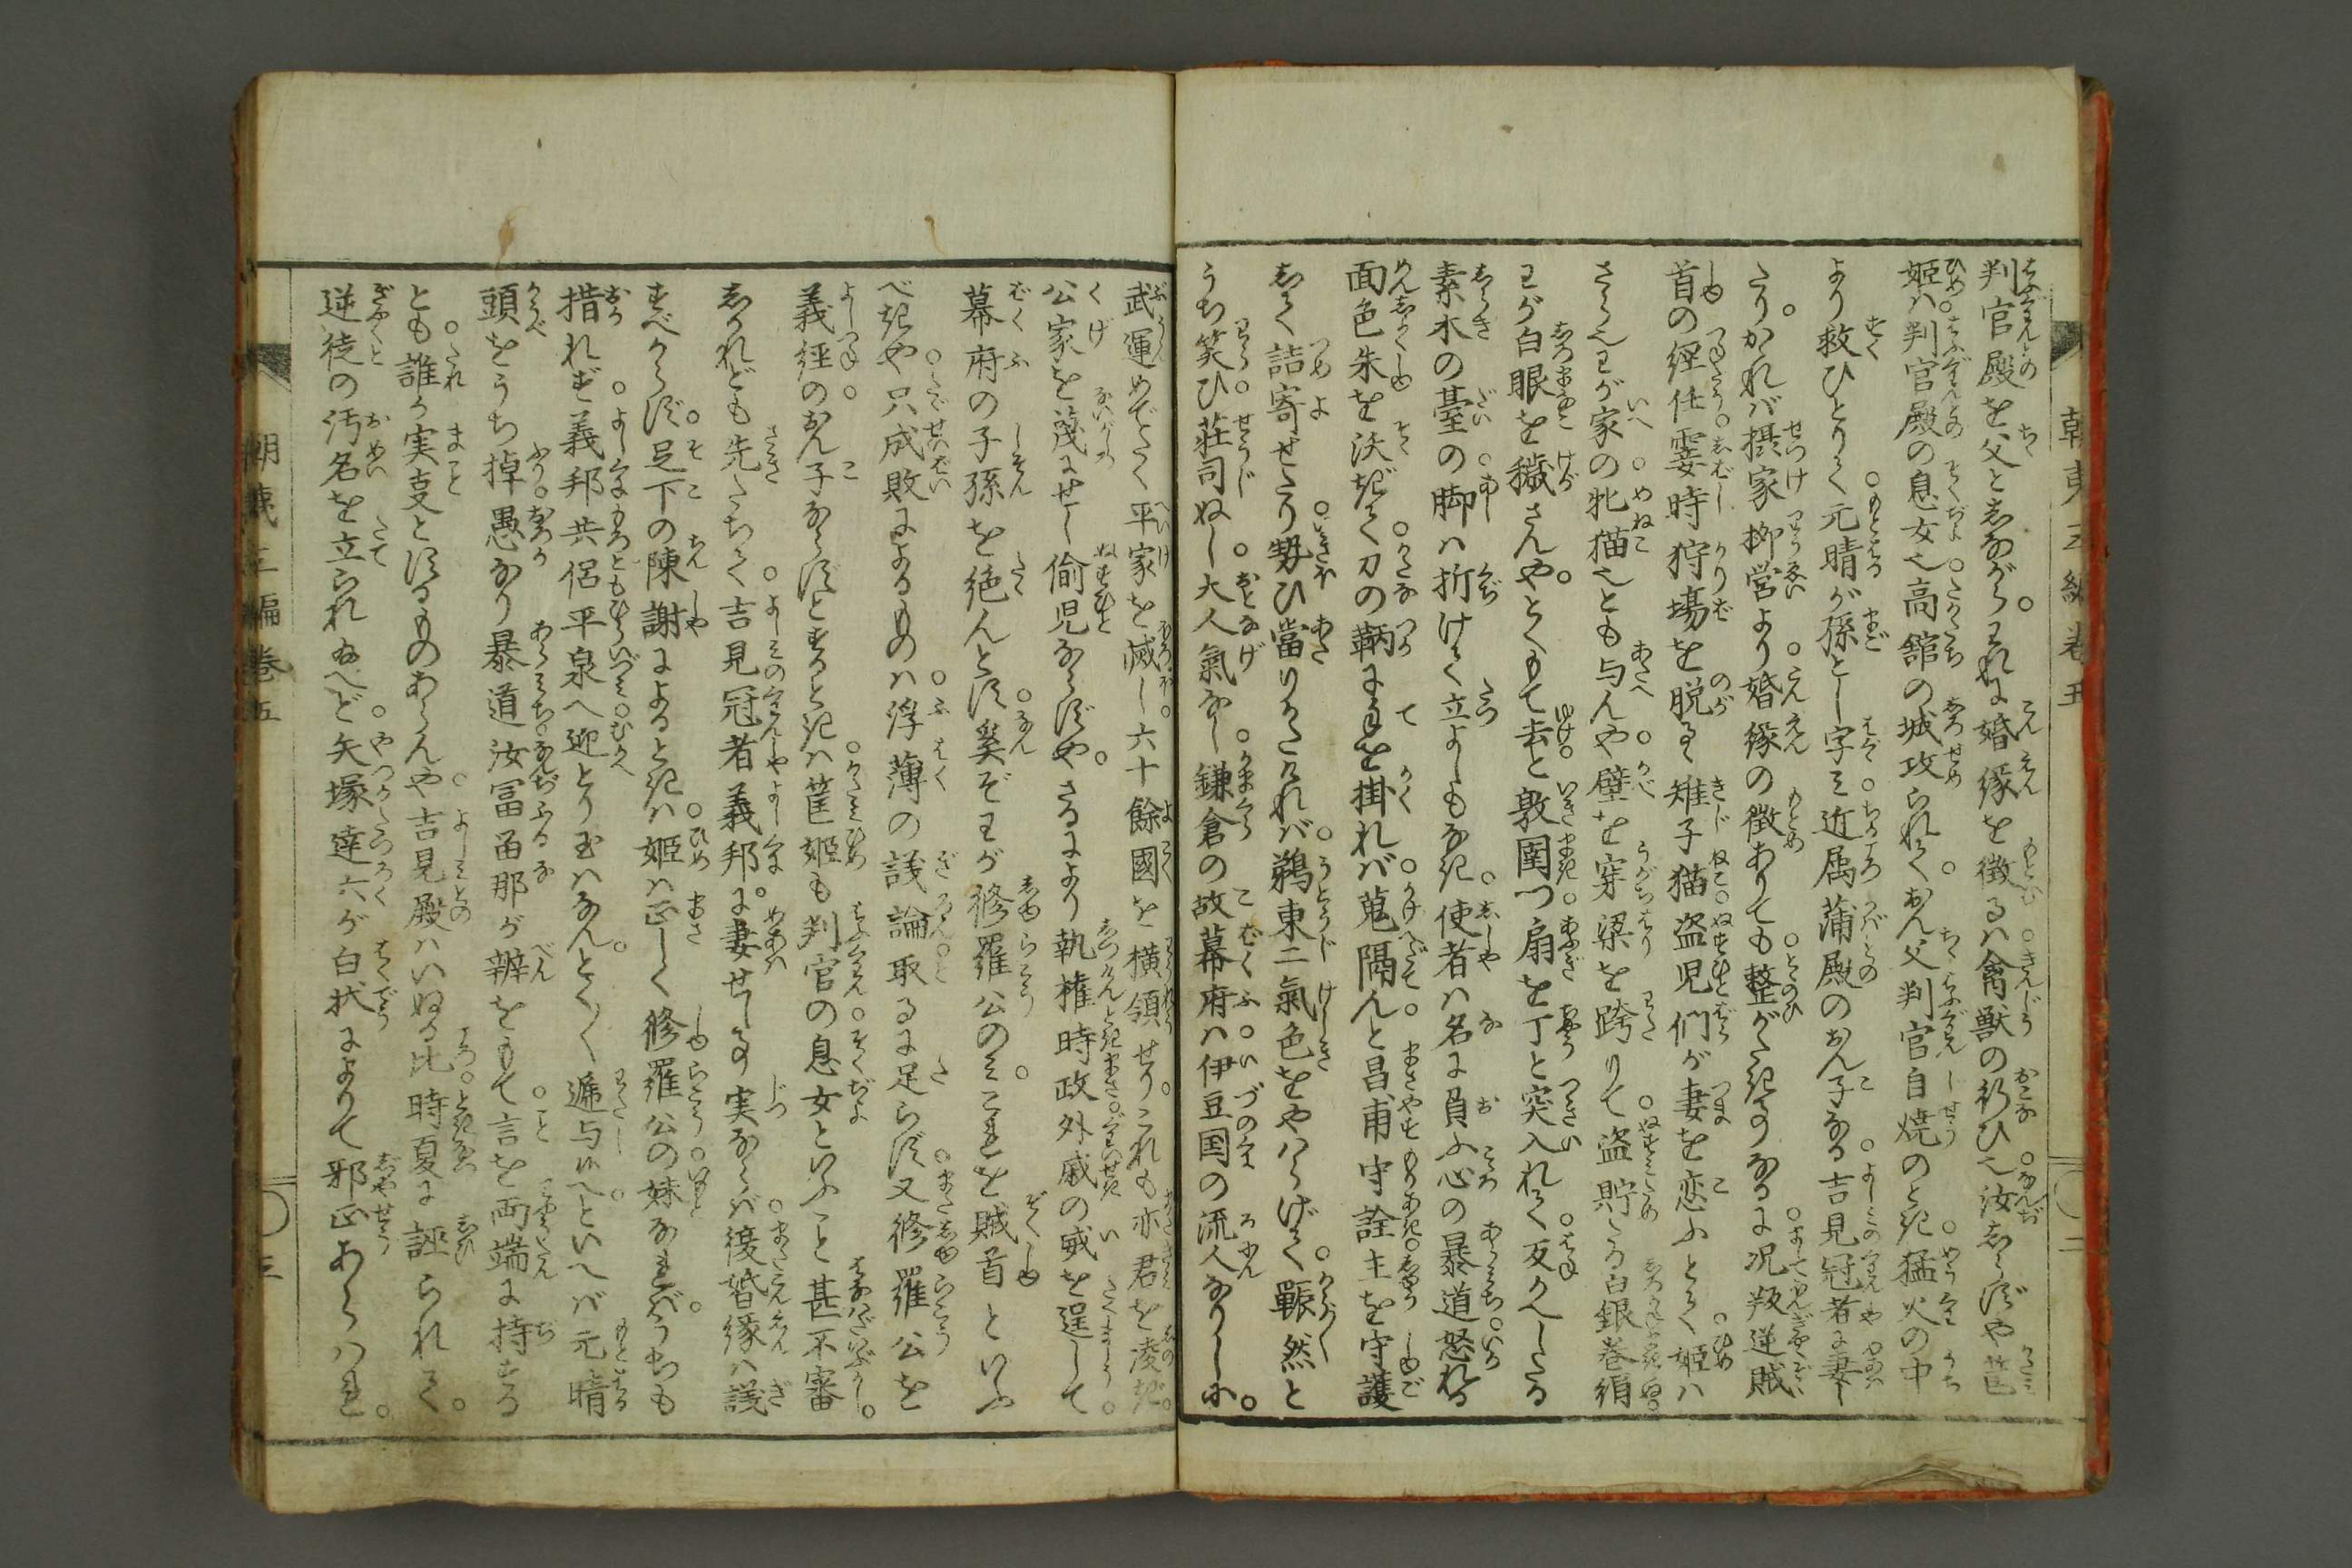 判官殿を父としながら。われに婚縁を徴るは禽獣の行ひ也。汝しらずや筐
姫は。判官殿の息女也。高舘の城攻られて。おん父判官自焼のとき。猛火の中
より救ひとりて。元晴が孫とし字み。近属蒲殿のおん子なる。吉見冠者に妻し
たり。かれば摂家柳営より。婚縁の徴ありても。整がたきのなるに。况叛逆賊
首の經任。霎時狩場を脱るゝ。雉子猫盗児們が妻を恋ふとて。姫は
さらんわが家の。牝猫也とも与んや。壁を穿梁を跨りて。盗貯たる白銀巻絹
わが白眼を穢さんや。とくもて去と敦圉つ。扇を丁と突入れて。反かへしたる
素木の臺の。脚は折けて立よしもなき。使者は名に負ふ心の暴道。怒れる
面色朱を沃ぎて。刀の鞆に手を掛れば。蒐隔んと昌甫守詮。主を守護
しく詰寄せたり。勢ひ當りかたければ。鵜東二氣色をやはらげて。囅然と
うち笑ひ。荘司ぬし。大人氣なし。鎌倉の故幕府は。伊豆国の流人なりしに。
武運めでたく平家を滅し。六十餘國を横領せり。これも亦君を凌ぎ。
公家を蔑にせし。偷児ならずや。さるにより執権時政。外戚の威を逞して
幕府の子孫を絶んとす。奚ぞわが修羅公のみ。これを賊首といふ
べきや。只成敗によるものは。浮薄の議論。取るに足らず。又修羅公を
義經の。おん子ならずとするときは。筐姫も判官の。息女といふこと甚不審。
しかれども先だちて。吉見冠者義邦に。妻せしの実ならば。復婚縁は議
すべからず。足下の陳謝によるときは。姫は正しく修羅公の。妹なればうちも
措れず。義邦共侶平泉へ。迎とり玉はなん。とく〳〵逓与候へ。といへば元晴
頭をうち掉。愚なり暴道。汝冨畄那が辨をもて。言を両端に持する
とも。誰か実事とするものあらんや。吉見殿はいぬる比。時夏に誣られて。
逆徒の汚名を立られ給へど。矢塚達六が白状によりて。邪正あらはれ。
朝夷三編巻五
三
朝夷三編巻五
二